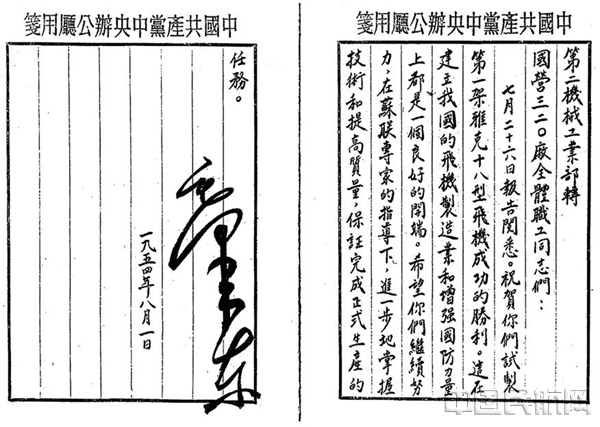 中國共產黨中央辦公廳用箋
第二機械工業部轉
國营三二〇廠全體職工同志們：
七月二十六日報告閱悉。祝賀你們試製
第一架雅克十八型飛機成功的勝利。這在
建立我國的飛機製造業和增强國防力量
上都是一個良好的開端。希望你們繼續努
力，在蘇联專家的指導下，進一步地掌握
技術和提高質量，保証完成正式生產的
中國共產黨中央辦公廳用箋
任務。
毛澤东
一九五四年八月一日
中国民航网